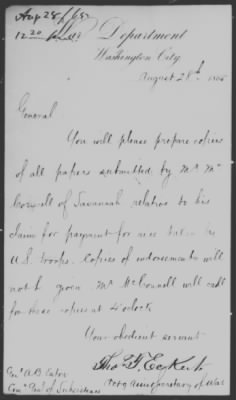 Aug 28/65
12 20
Department
Washington City
August 28th 1865
General
You will please prepare copies
of all papers submitted by Mr Mc
of Savannah relative to his
claim for payment for rice taken by
U.S. troops. Copies of endorsements will
not be given. Mr McConnell will call
for these copies at 4 oclock
Your obedient servant
Thos T. Eckert
Actg Asst Secretary of War
Genl A B Eaton
Comy Genl of Subsistence